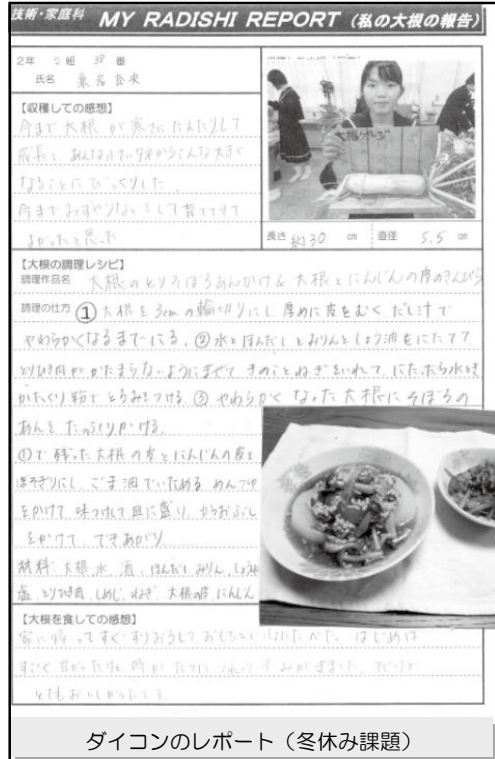 技術・家庭科 MY RADISHI REPORT (私の大根の報告)
2年 2組 37番
氏名
【収穫しての感想】
今まで大根が寒さにたえたりして
成長し、あんな小さいタネからこんな大きく
なることにびっくりした。
今まで水やりなどして育ててきて
よかったと思った
長さ 約30 cm 直径 5.5 cm
【大根の調理レシピ】
調理作品名 大根のとりそぼろあんかけ& 大根とにんじんの皮のきんぴら
調理の仕方 ①大根を3cmの輪切りにし、厚めに皮をむく だし汁で
やわらかくなるまでにる。②水とほんだしとみりんとしょう油をにたてて
とりひき肉がかたまらないようにまぜて きのことねぎをいれて、にたったら水とき
かたくり粉でとろみをつける ③やわらかくなった大根にそぼろの
あんをたっぷりかける
①で残った大根の皮とにんじんの皮を
ほそぎりにし、ごま油でいためる めんつゆ
をかけて 味つけして皿に盛り、かつおぶし
をかけて、できあがり。
材料:大根、水、酒、ほんだし、みりん、しょうゆ
塩、とりひき肉、しめじ、ねぎ、大根の皮、にんじん
【大根を食しての感想】
家に帰ってすぐすりおろして、おもちといっしょにたべた。はじめは
すごく甘かったけど 時がたつにつれて
とてもおいしかったです
ダイコンのレポート(冬休み課題)